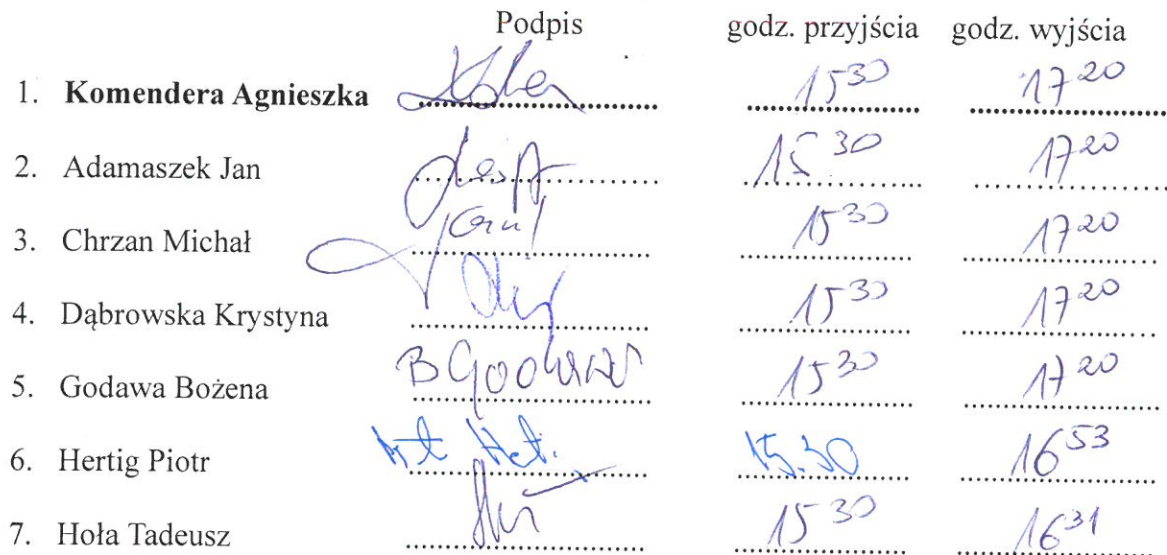 Podpis godz. przyjścia godz. wyjścia
1. Komendera Agnieszka 15 30 17 20
2. Adamaszek Jan 15 30 17 20
3. Chrzan Michał 15 30 17 20
4. Dąbrowska Krystyna 15 30 17 20
5. Godawa Bożena BGodawa 15 30 17 20
6. Hertig Piotr 15.30 16 53
7. Hoła Tadeusz 15 30 16 31